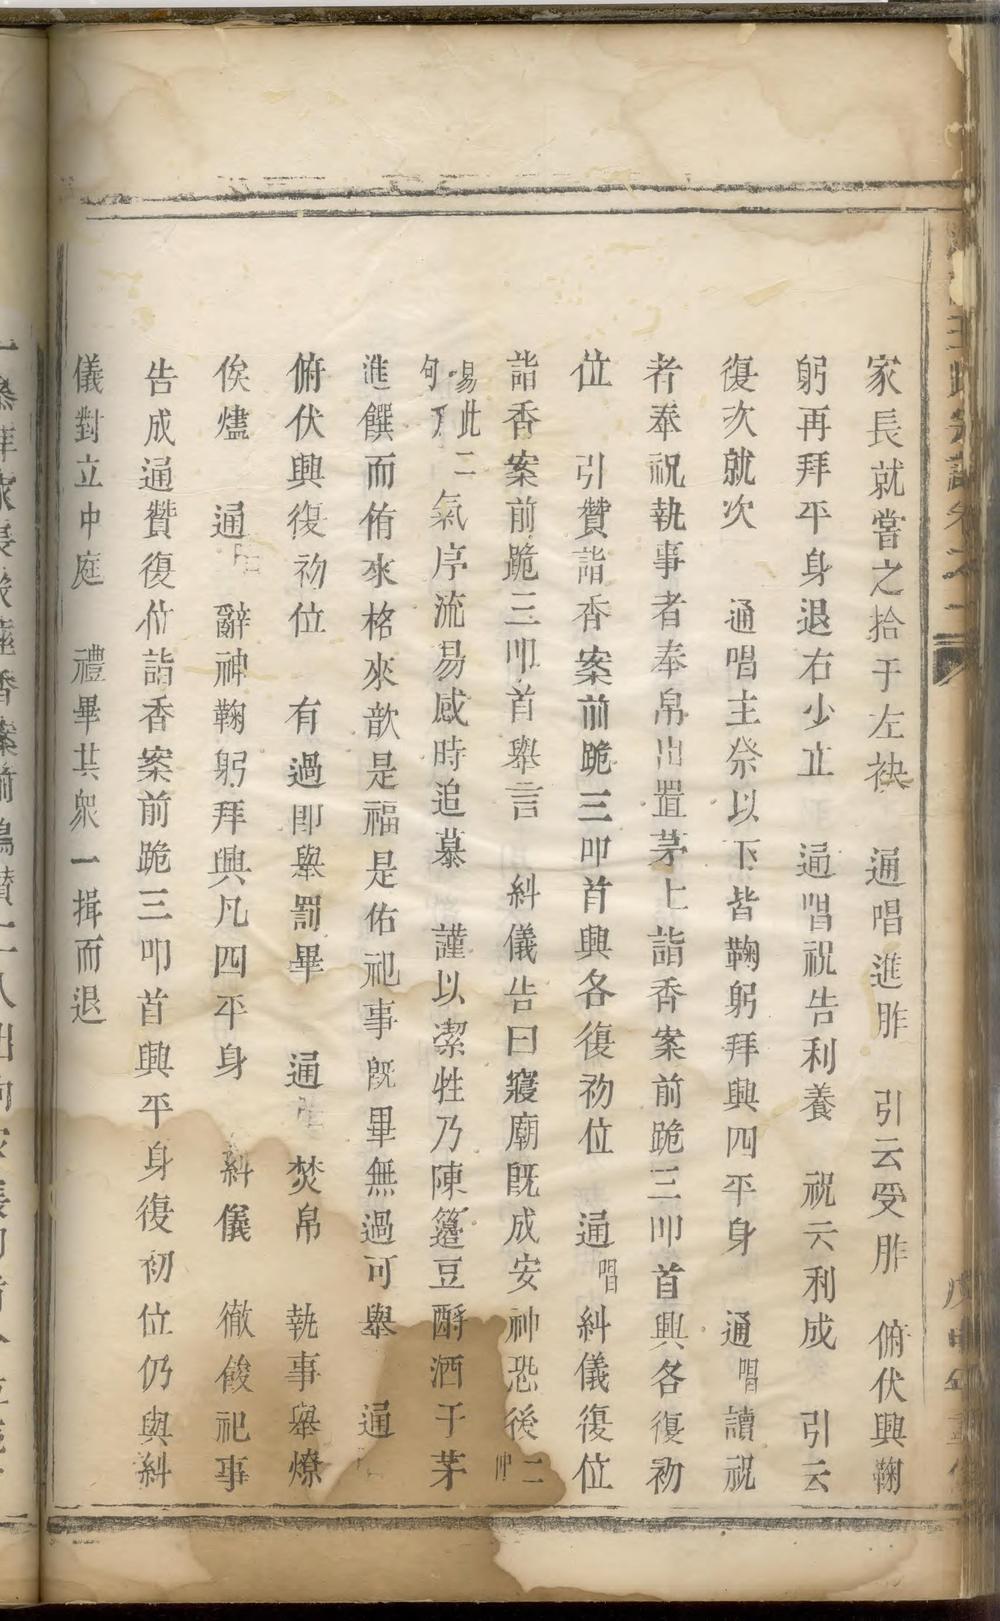 家長就嘗之拾于左袂　通唱進胙　引云受胙　俯伏興鞠
躬再拜平身退右少立　通唱祝告利養　祝云利成　引云
復次就次　通唱主祭以下皆鞠躬拜興四平身　通唱讀祝
者奉祝執事者奉帛出置茅上詣香案前跪三叩首興各復初
位　引贊詣香案前跪三叩首興各復初位　通唱糾儀復位
詣香案前跪三叩首舉言　糾儀告曰寢廟既成安神恐後二仲
易此二句　氣序流易感時追慕　謹以潔牲乃陳籩豆酹酒于茅
進饌而侑來格來歆是福是佑祀事既畢無過可舉　通
俯伏興復初位　有過即舉罰畢　通　焚帛　執事舉燎
俟燼　通唱　辭神鞠躬拜興凡四平身　糾儀　徹餕祀事
告成通贊復位詣香案前跪三叩首興平身復初位仍與糾
儀對立中庭　禮畢其眾一揖而退